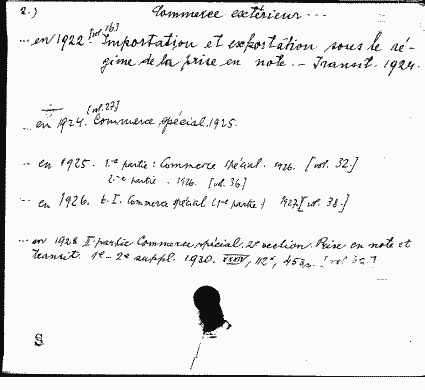 2.) Commerce extérieur ...
... en 1922. [vol. 16] Importation et exportation sous le ré-
gime de la prise en note. - Transit. 1924.
... en 1924. [vol. 27] Commerce spécial. 1925.
... en 1925. 1re partie: Commerce spécial. 1926. [vol. 32.]
2me partie. 1926. [vol. 36]
... en 1926. t. I. Commerce spécial (1re partie) 1927 [vol. 38.]
... en 1928 II partie Commerce spécial. 2e section. Prise en note et
transit. 1e - 2e suppl. 1930. XXXIV, 112*, 453 p. [vol 39.]
S